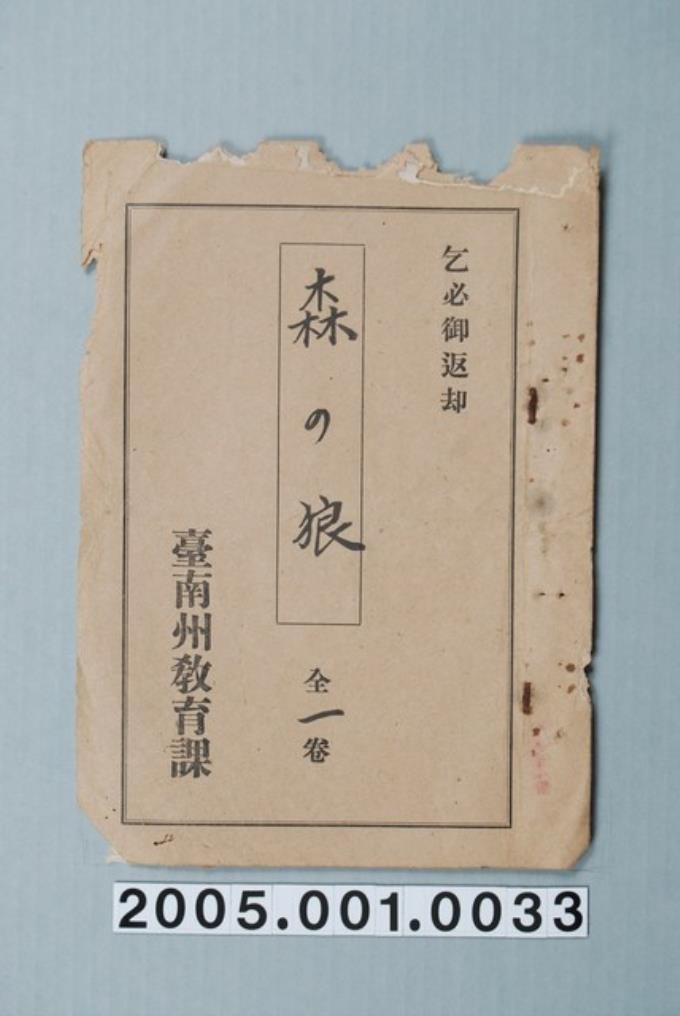 乞必御返却
森の狼
全一卷
臺南州教育課
2005.001.0033